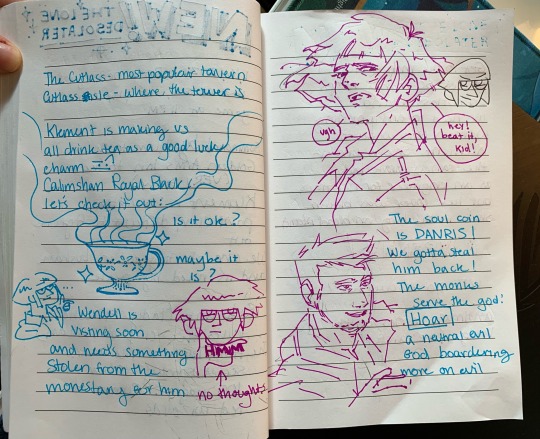 NEW!
THE LONE
DESOLATER
The Cutlass - most populair tavern
Cutlass Isle - where the tower is
Klement is making us
all drink tea as a good luck
charm
Calimshan Royal Black
let's check it out:
is it ok?
maybe it
is?
Wendell is
visiting soon
and needs something
stolen from the
monestary for him
HMMM
no thoughts
ugh
hey!
beat it,
kid!
The soul coin
is DANRIS!
We gotta steal
him back!
The monks
serve the god!
Hoar
a neutral evil
God boardering
more on evil